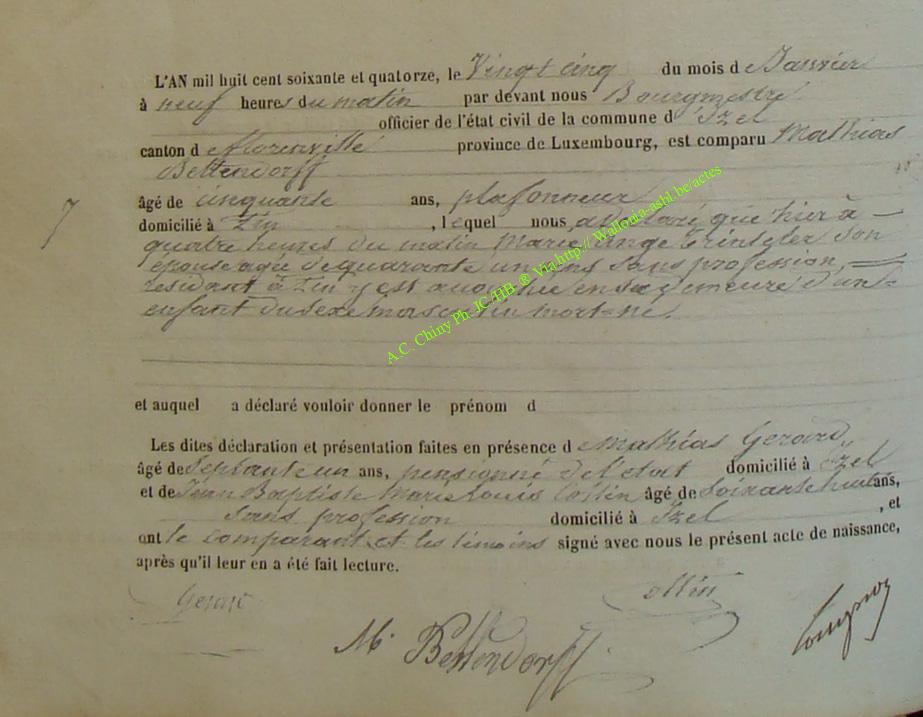 L'AN mil huit cent soixante et quatorze, le Vingt cinq du mois d e Janvier
à neuf heures du matin par devant nous Bourgmestre
officier de l'état civil de la commune d' Izel
canton d e Florenville province de Luxembourg, est comparu Mathias
Bettendorff
7
âgé de cinquante ans, plafonneur
domicilié à Pin, lequel nous a déclaré que hier à
quatre heures du matin Marie Ange son
épouse agée de quarante un ans sans profession,
résidant à Pin y est accouchée en sa demeure d'un
enfant du sexe masculin mort-né.
et auquel a déclaré vouloir donner le prénom d
Les dites déclaration et présentation faites en présence d e Mathias Gerard,
âgé de Septante un ans, pensionné de l'etat domicilié à Izel
et de Jean Baptiste Marie Louis Ottin âgé de soixante huit ans,
sans profession domicilié à Izel, et
ont le comparant et les témoins signé avec nous le présent acte de naissance,
après qu'il leur en a été fait lecture.
Gerard Ottin
M. Bettendorff
A.C. Chiny Ph-JC/HB ® Via http// Wallonia-asbl.be/actes